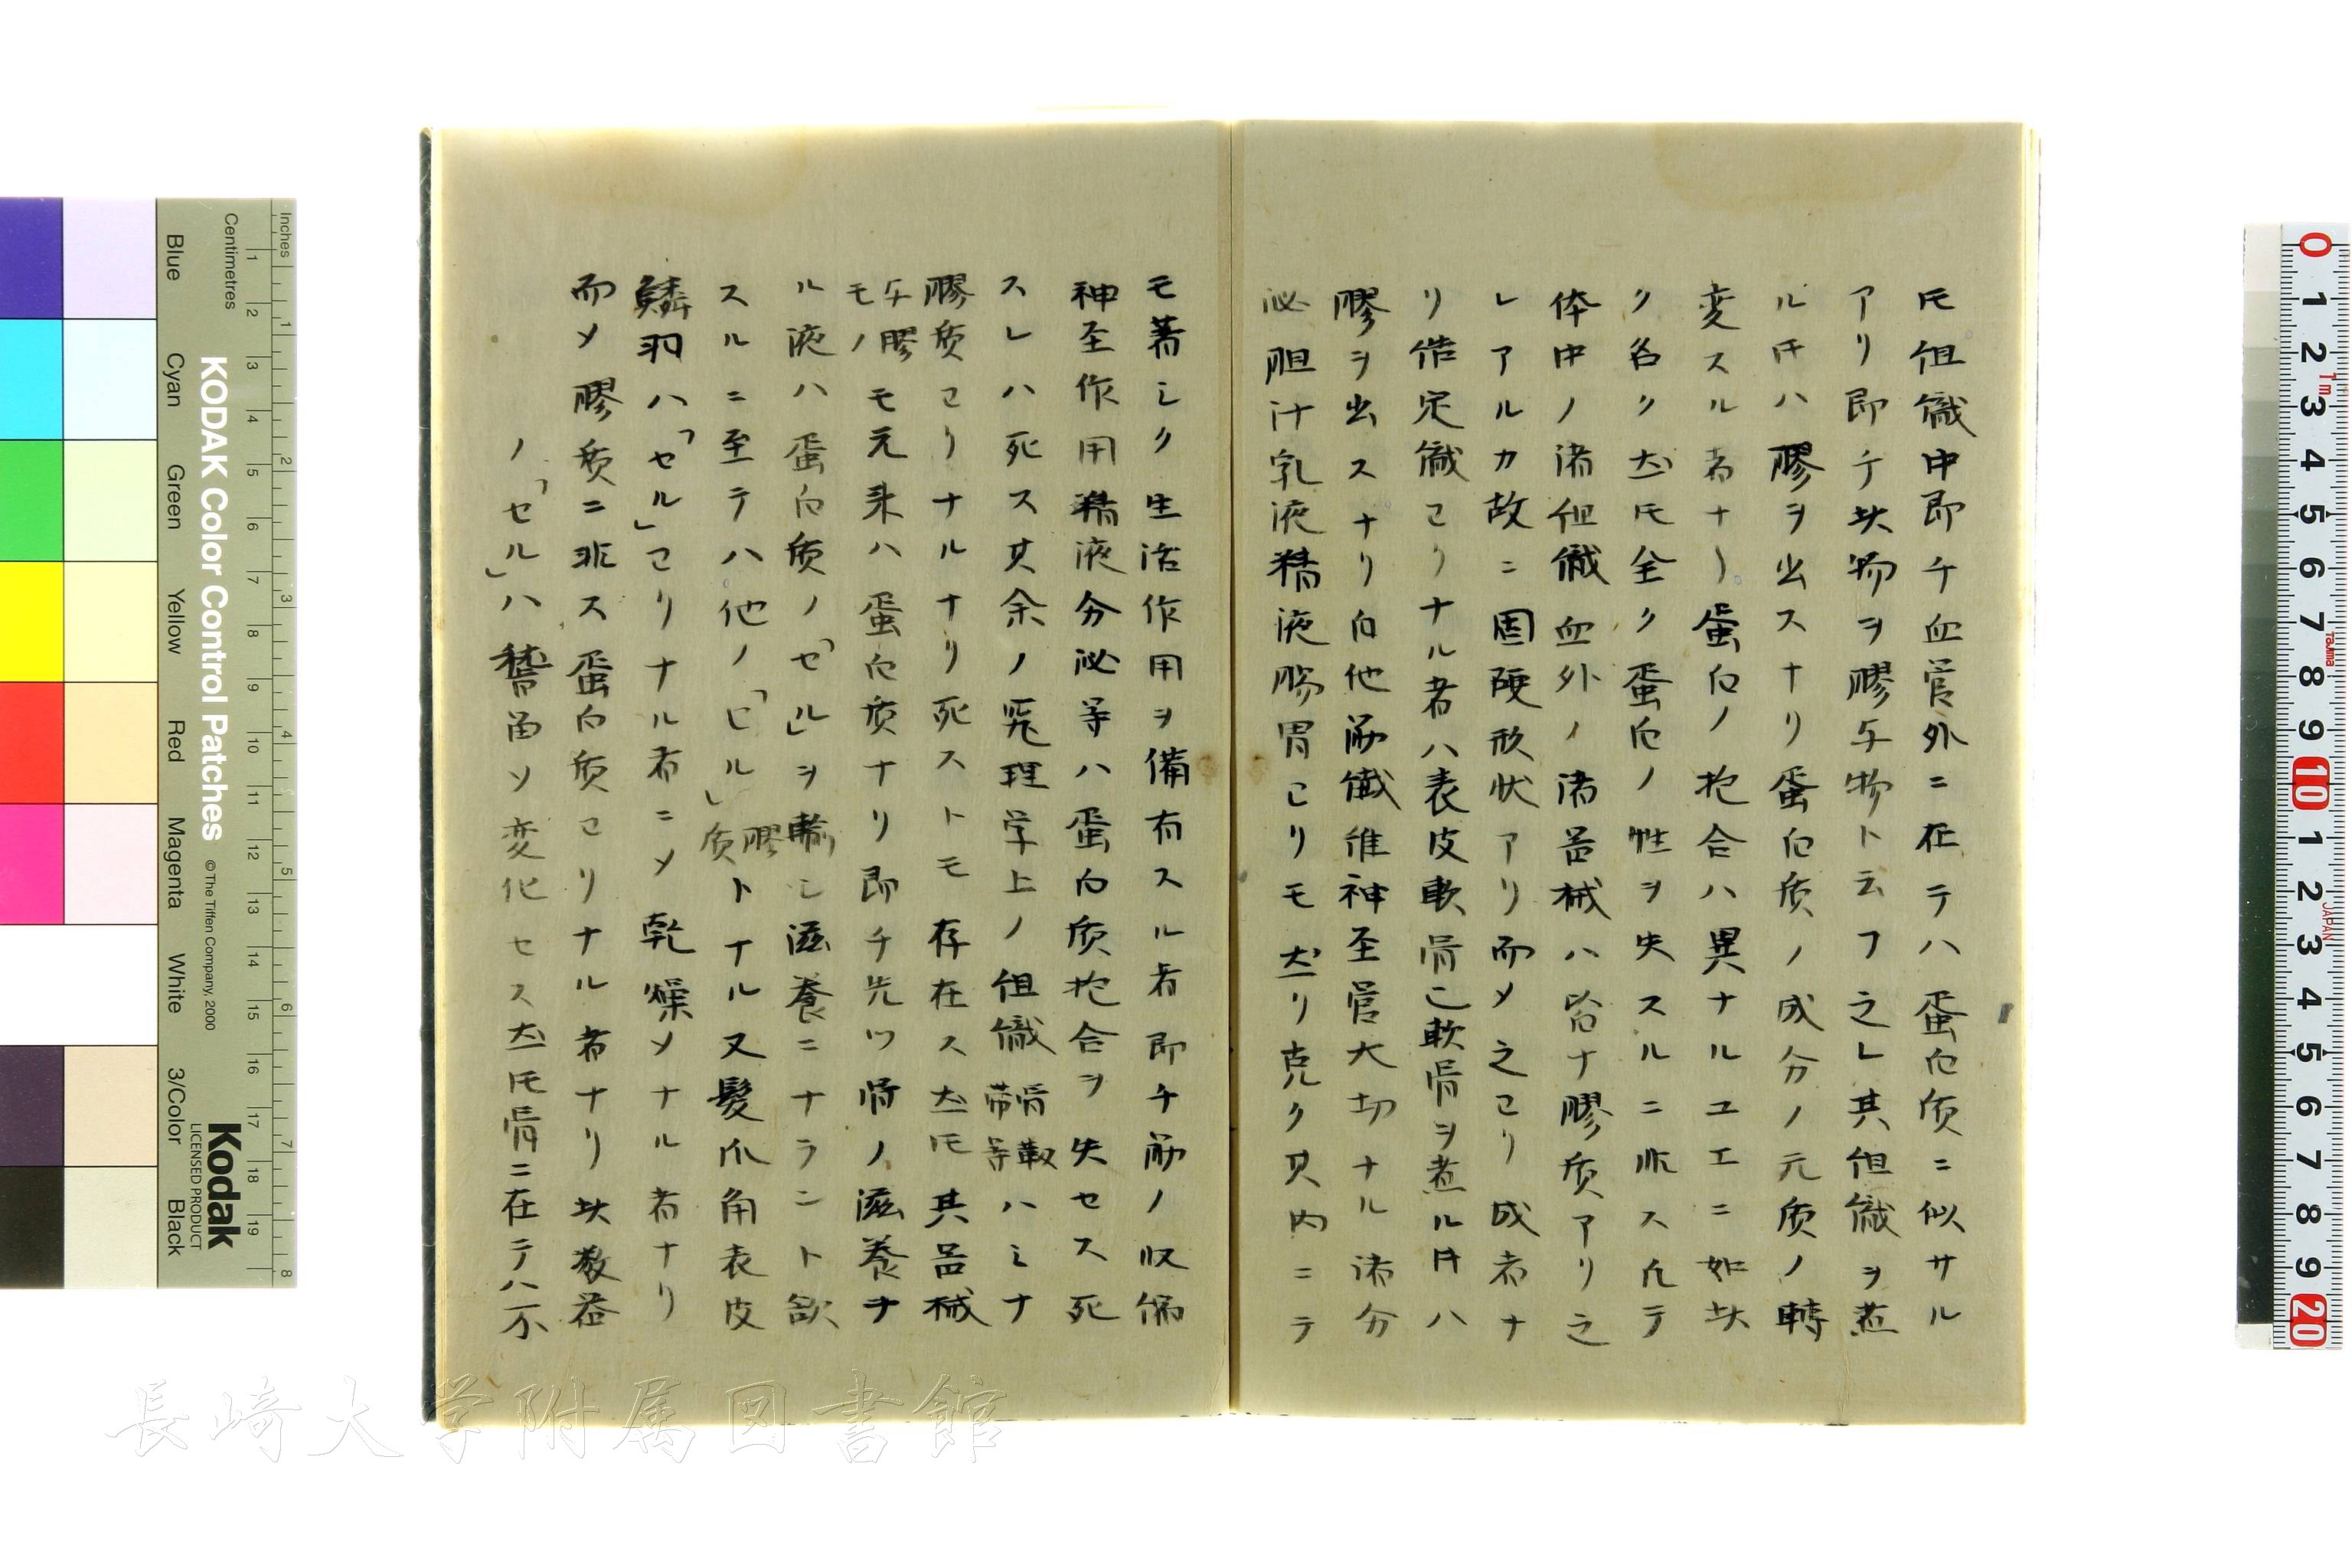 𪜈組織中即チ血管外ニ在テハ蛋白质ニ似サル
アリ即チ此物ヲ膠与物ト云フ之レ其組織ヲ煮
ル𪜈ハ膠ヲ出スナリ蛋白质ノ成分ノ元质ノ轉
変スル者ナリ蛋白ノ抱合ハ異ナルユエニ如此
ク名ク𪜈全ク蛋白ノ性ヲ失スルニ非ス凡テ
体中ノ諸組織血外ノ諸器械ハ皆ナ膠质アリ之
レアルカ故ニ固硬形状アリ而メ之ヨリ成者ナ
リ結定織ヨリナル者ハ表皮軟骨也軟骨ヲ煮ル片ハ
膠ヲ出スナリ白他筋織維神圣管大切ナル諸分
泌胆汁乳液精液膓胃ヨリモ出リ克ク其内ニテ
モ著シク生活作用ヲ備有スル者即チ筋ノ収縮
神圣作用精液分泌等ハ蛋白质抱合ヲ失セス死
スレハ死ス其余ノ究理学上ノ組織骨靱帯等ハミナ
膠质ヨリナルナリ死ストモ存在ス𪜈其器械
与膠モノモ元来ハ蛋白质ナリ即チ先ツ骨ノ滋養ヲナ
ル液ハ蛋白质ノ「セル」ヲ輸シ滋養ニナラント欲
スルニ至テハ他ノ「ヒル」膠质トナル又髪爪角表皮
鱗羽ハ「セル」ヨリナル者ニメ乾燥メナル者ナリ
而メ膠质ニ非ス蛋白质ヨリナル者ナリ此数器
ノ「セル」ハ替歯ソ変化セス𪜈骨ニ在テハ不
KODAK Color Control Patches
© The Tiffen Company, 2000
Kodak
LICENSED PRODUCT
Inches
Centimetres
Blue
Cyan
Green
Yellow
Red
Magenta
White
3/Color
Black
長崎大学附属図書館